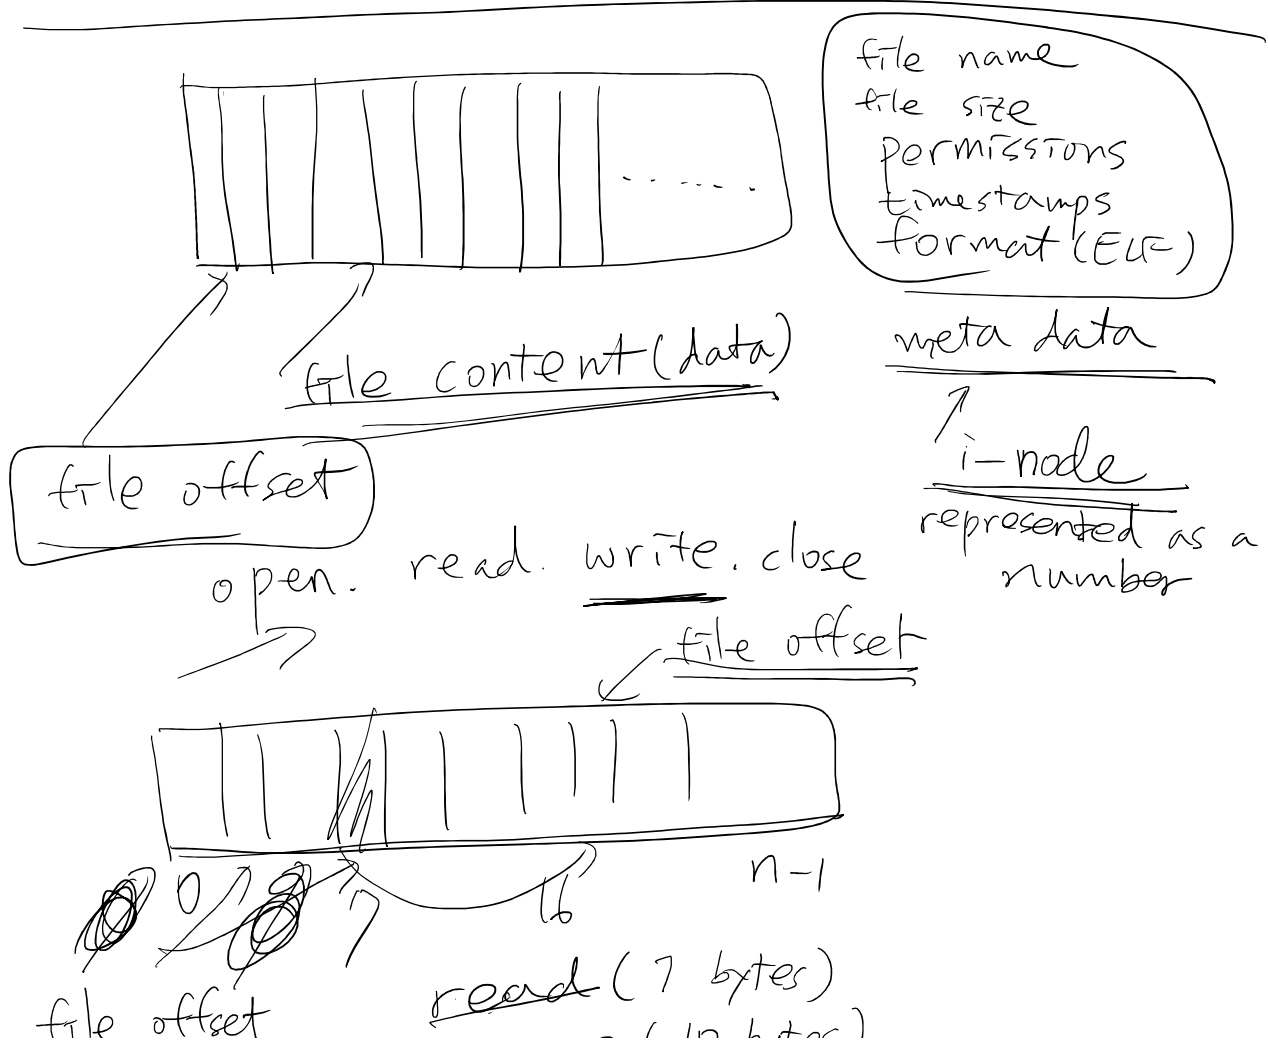 file name
file size
permissions
timestamps
format (ELF)
file content (data)
meta data
i-node
represented as a
number
file offset
open. read. write. close
file offset
n-1
0
7
16
file offset
read (7 bytes)
(10 bytes)